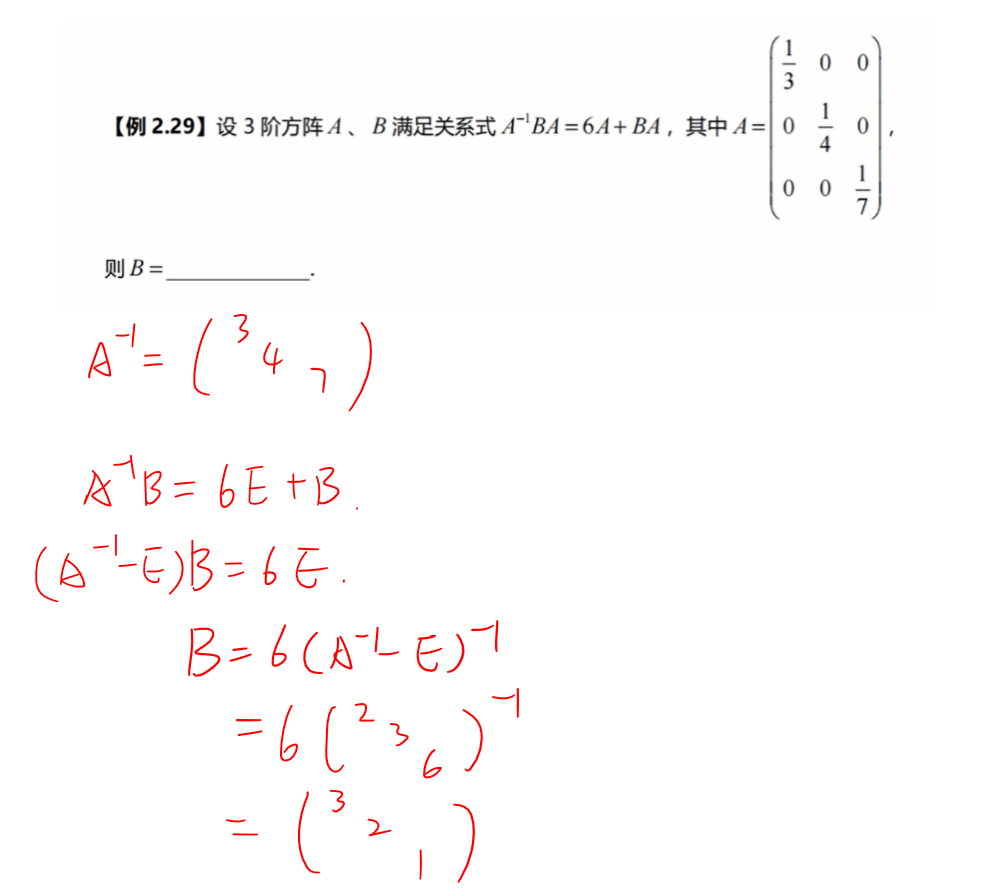 【例 2.29】设 3 阶方阵 A 、 B 满足关系式 A⁻¹BA = 6A + BA ，其中 A = (1/3 0 0; 0 1/4 0; 0 0 1/7) ，
则 B = ____________.
A⁻¹ = ( 3 4 7 )
A⁻¹B = 6E + B .
(A⁻¹-E)B = 6E .
B = 6(A⁻¹-E)⁻¹
= 6( 2 3 6 )⁻¹
= ( 3 2 1 )